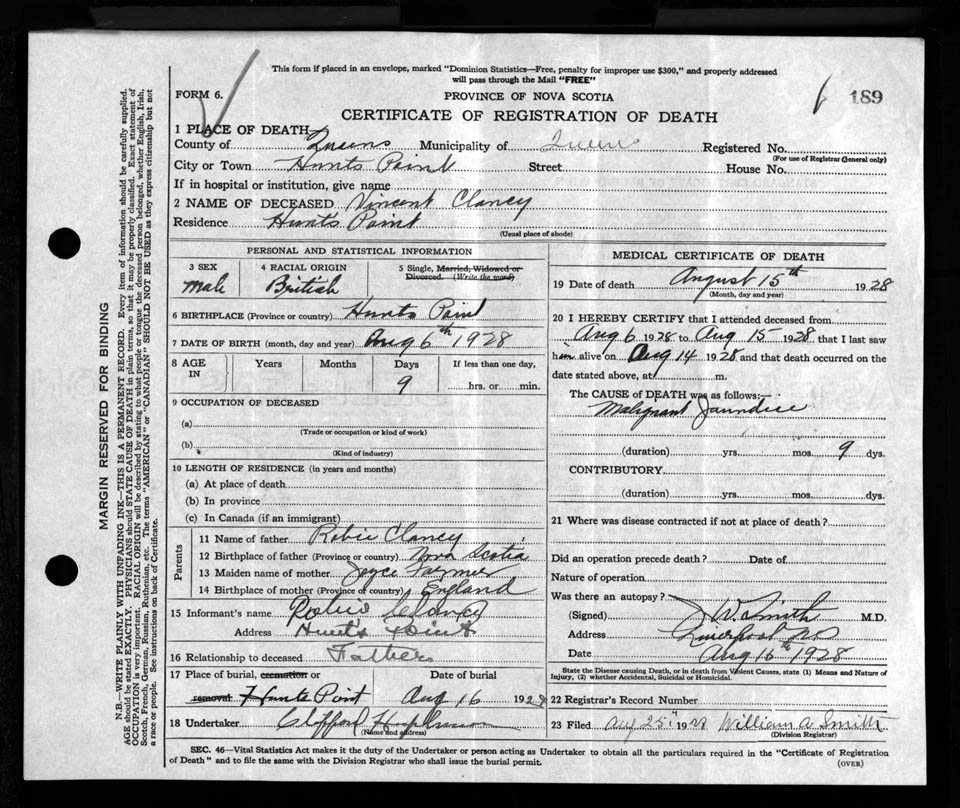 This form if placed in an envelope, marked "Dominion Statistics—Free, penalty for improper use $300," and properly addressed
will pass through the Mail "FREE"
FORM 6.
PROVINCE OF NOVA SCOTIA
189
CERTIFICATE OF REGISTRATION OF DEATH
1 PLACE OF DEATH
County of Queens Municipality of Queens Registered No.
(For use of Registrar General only)
City or Town Hunts Point Street House No.
If in hospital or institution, give name
2 NAME OF DECEASED Vincent Clancy
Residence Hunts Point
(Usual place of abode)
PERSONAL AND STATISTICAL INFORMATION
3 SEX 4 RACIAL ORIGIN 5 Single, Married, Widowed or
Divorced. (Write the word)
Male British
6 BIRTHPLACE (Province or country) Hunts Point
7 DATE OF BIRTH (month, day and year) Aug 6th 1928
8 AGE IN Years Months Days If less than one day,
9 hrs. or min.
9 OCCUPATION OF DECEASED
(a)
(Trade or occupation or kind of work)
(b)
(Kind of industry)
10 LENGTH OF RESIDENCE (in years and months)
(a) At place of death
(b) In province
(c) In Canada (if an immigrant)
Parents
11 Name of father Robie Clancy
12 Birthplace of father (Province or country) Nova Scotia
13 Maiden name of mother Joyce Farmer
14 Birthplace of mother (Province or country) England
15 Informant's name Robie Clancy
Address Hunt's Point
16 Relationship to deceased Father
17 Place of burial, cremation or Date of burial
removal Hunts Point Aug 16 1928
18 Undertaker Clifford
(Name and address)
MEDICAL CERTIFICATE OF DEATH
19 Date of death August 15th 1928
(Month, day and year)
20 I HEREBY CERTIFY that I attended deceased from
Aug 6 1928 to Aug 15 1928 that I last saw
him alive on Aug 14 1928 and that death occurred on the
date stated above, at m.
The CAUSE of DEATH was as follows:—
Malignant Jaundice
(duration) yrs. mos. 9 dys.
CONTRIBUTORY
(duration) yrs. mos. dys.
21 Where was disease contracted if not at place of death?
Did an operation precede death? Date of
Nature of operation
Was there an autopsy?
(Signed) J W Smith M.D.
Address Liverpool NS
Date Aug 16th 1928
State the Disease causing Death, or in death from Violent Causes, state (1) Means and Nature of
Injury, (2) whether Accidental, Suicidal or Homicidal.
22 Registrar's Record Number
23 Filed Aug 25th 1928 William A Smith
(Division Registrar)
SEC. 46—Vital Statistics Act makes it the duty of the Undertaker or person acting as Undertaker to obtain all the particulars required in the "Certificate of Registration
of Death" and to file the same with the Division Registrar who shall issue the burial permit.
(OVER)
MARGIN RESERVED FOR BINDING
N.B.—WRITE PLAINLY WITH UNFADING INK—THIS IS A PERMANENT RECORD. Every item of information should be carefully supplied.
AGE should be stated EXACTLY. PHYSICIANS should STATE CAUSE OF DEATH in plain terms, so that it may be properly classified. Exact statement of
OCCUPATION is very important. RACIAL ORIGIN will be described by stating to what people or tongue the deceased person belonged, whether English, Irish,
Scotch, French, German, Russian, Ruthenian, etc. The terms "AMERICAN" or "CANADIAN" SHOULD NOT BE USED as they express citizenship but not
a race or people. See instructions on back of Certificate.